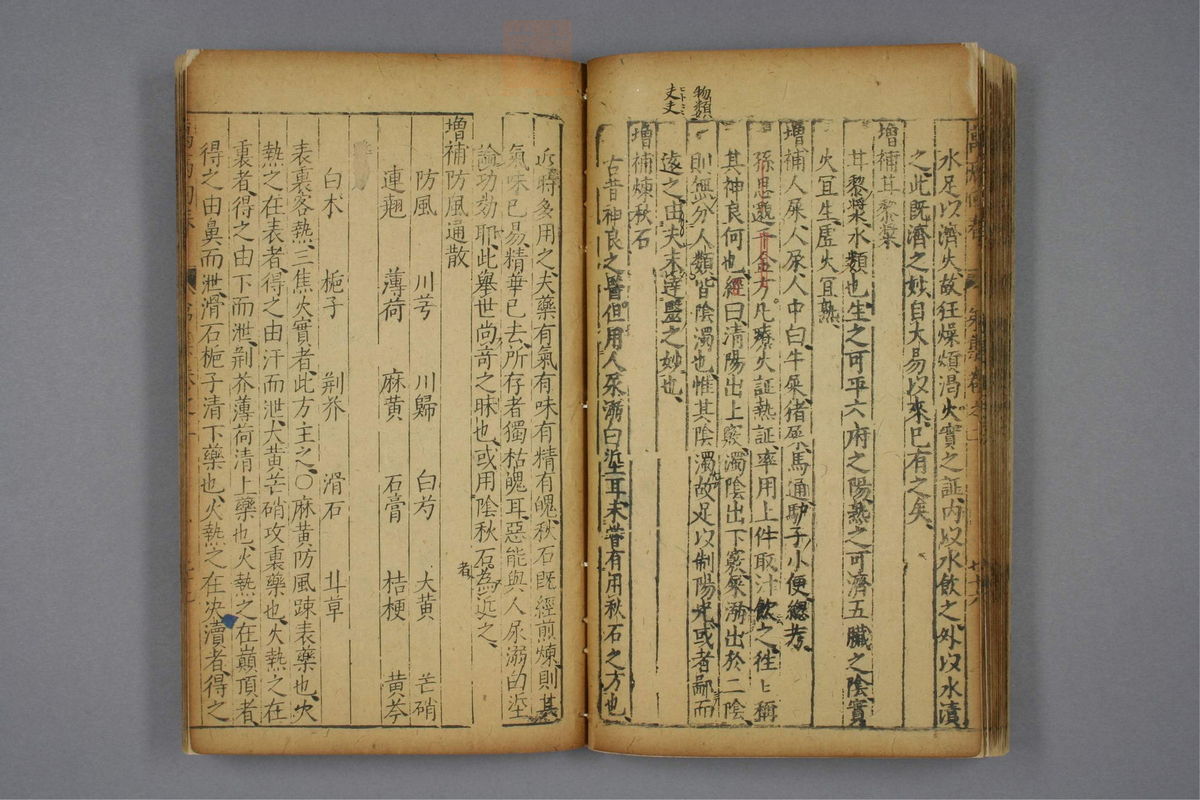 水足以濟火故狂燥煩渴火實之証内以水飲之外以水漬
之此既濟之妙自大易以來已有之矣
增補甘黎漿
甘黎漿水類也生之可平六府之陽熱之可濟五臟之陰實
火宜生虛火宜熟
增補人屎人尿人中白牛屎猪屎馬通馿子小便總考
孫思邈千金方凡療火証熱証率用上件取汁飲之徃〻稱
其神良何也經曰清陽出上竅濁陰出下竅屎溺出於二陰
則無分人類物類皆陰濁也惟其陰濁故足以制陽光或者鄙而
遠之由夫未達醫之妙也
增補煉秋石
古昔神良之醫但用人尿溺白垽耳未嘗有用秋石之方也
近時多用之夫藥有氣有味有精有魄秋石既經煎煉則其
氣味已易精華已去所存者獨枯魄耳惡能與人尿溺白垽
論功効耶此舉世尚奇之昧也或用陰秋石者為近之
增補防風通散
防風 川芎 川歸 白芍 大黄 芒硝
連翹 薄荷 麻黄 石膏 桔梗 黄芩
白朮 梔子 荆芥 滑石 甘草
表裏客熱三焦火實者此方主之〇麻黄防風踈表藥也火
熱之在表者得之由汗而泄大黄芒硝攻裏藥也火熱之在
裏者得之由下而泄荆芥薄荷清上藥也火熱之在巔頂者
得之由鼻而泄滑石梔子清下藥也火熱之在决瀆者得之